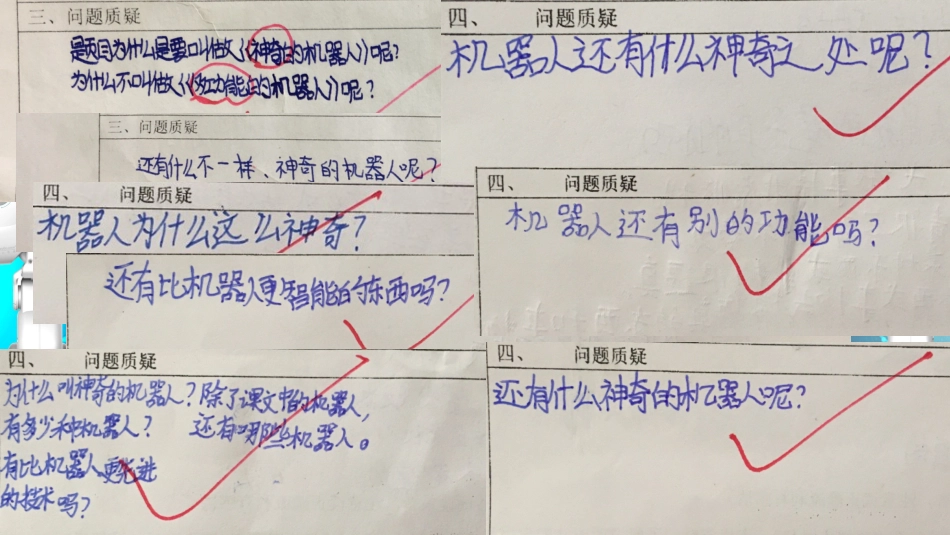 三、问题质疑
是题目为什么是要叫做《神奇的机器人》呢?
为什么不叫做《多功能的机器人》呢?
三、问题质疑
还有什么不一样、神奇的机器人呢?
四、 问题质疑
机器人为什么这么神奇?
还有比机器人更智能的东西吗?
四、 问题质疑
为什么叫神奇的机器人?除了课文中的机器人,
有多少种机器人? 还有哪些机器人。
有比机器人更先进
的技术吗?
四、 问题质疑
机器人还有什么神奇之处呢?
四、 问题质疑
机器人还有别的功能吗?
四、 问题质疑
还有什么神奇的机器人呢?